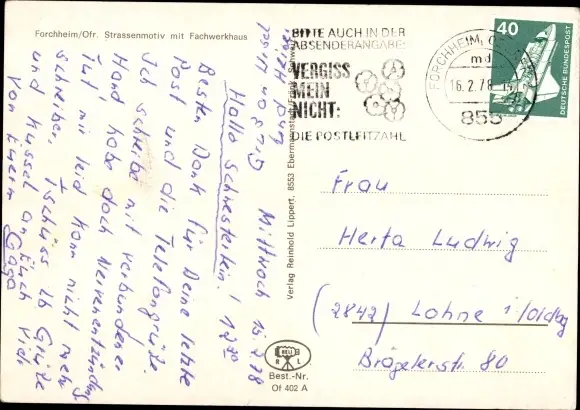 Forchheim/Ofr. Strassenmotiv mit Fachwerkhaus
Mittwoch 15.2.78
12.30
Hallo Schwesterlein!
Besten Dank für Deine letzte
Post und die Telefongrüße
Ich schreibe mit verbundener
Hand habe doch Nervenentzündung
Tut mir leid kann nicht mehr
schreiben, Tschüss lb Grüße
und Küssel an Euch
Von Eurem Gaga
Verlag Reinhold Lippert, 8553 Ebermannstadt/Fränk. Schweiz
BITTE AUCH IN DER
ABSENDERANGABE:
VERGISS
MEIN
NICHT:
DIE POSTLEITZAHL
FORCHHEIM, O
md
16.2.78
855
40
DEUTSCHE BUNDESPOST
Frau
Herta Ludwig
(2842) Lohne i/Oldbg
Brägelerstr. 80
BELI
R L
Best.-Nr.
Of 402 A